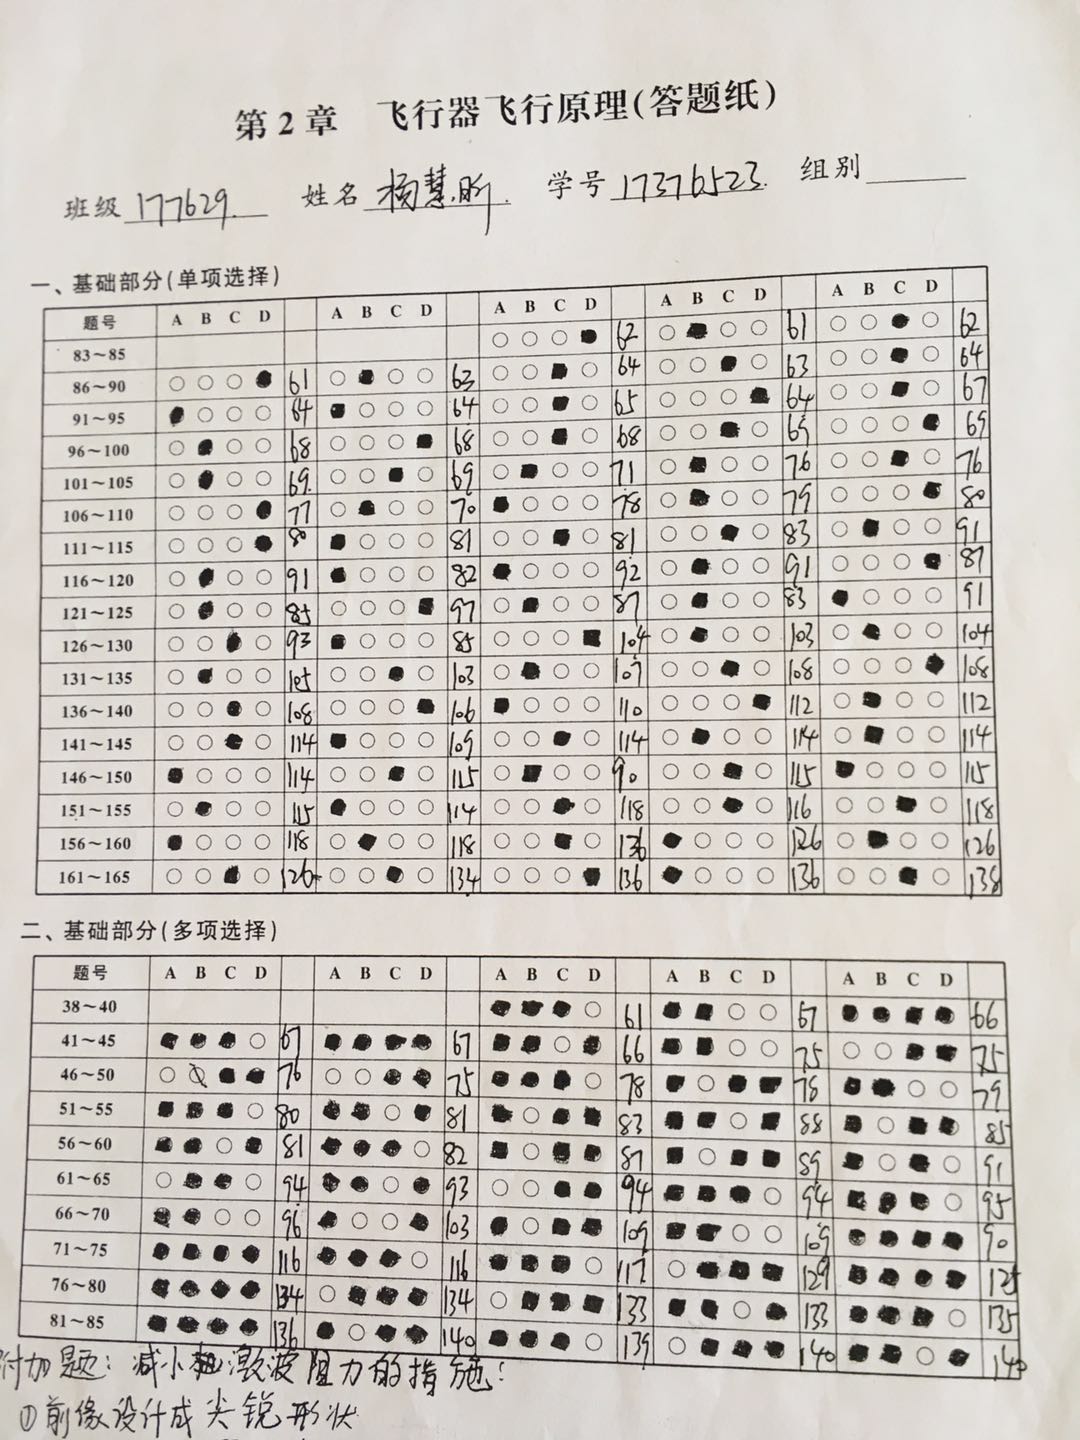 第2章 飞行器飞行原理(答题纸)
班级 177629. 姓名 杨慧昕. 学号 17376523. 组别
一、基础部分(单项选择)
题号 A B C D A B C D A B C D A B C D A B C D
83～85 62 61 62
86～90 61 63 64 63 64
91～95 64 64 65 64 67
96～100 68 68 68 69 69
101～105 69. 69 71 76 76
106～110 77 70 78 79 80
111～115 80 81 81 83 91
116～120 91 82 92 91 87
121～125 85 97 87 83 91
126～130 93 85 104 103 104
131～135 105 103 107 108 108
136～140 108 106 110 112 112
141～145 114 109 114 114 114
146～150 114 115 90 115 115
151～155 115 114 118 116 118
156～160 118 118 136 126 126
161～165 126 134 136 136 138
二、基础部分(多项选择)
题号 A B C D A B C D A B C D A B C D A B C D
38～40 61 67 66
41～45 67 67 66 75 75
46～50 76 75 78 78 79
51～55 80 81 83 88 85
56～60 81 82 87 89 91
61～65 94 93 94 94 95
66～70 96 103 109 109 90
71～75 116 116 117 129 125
76～80 134 134 133 133 135
81～85 136 140 139 140 140
附加题：减小激波阻力的措施：
①前缘设计成尖锐形状